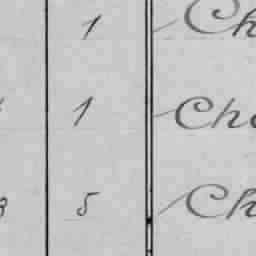 1 Ch
1 Che
3 5 Ch